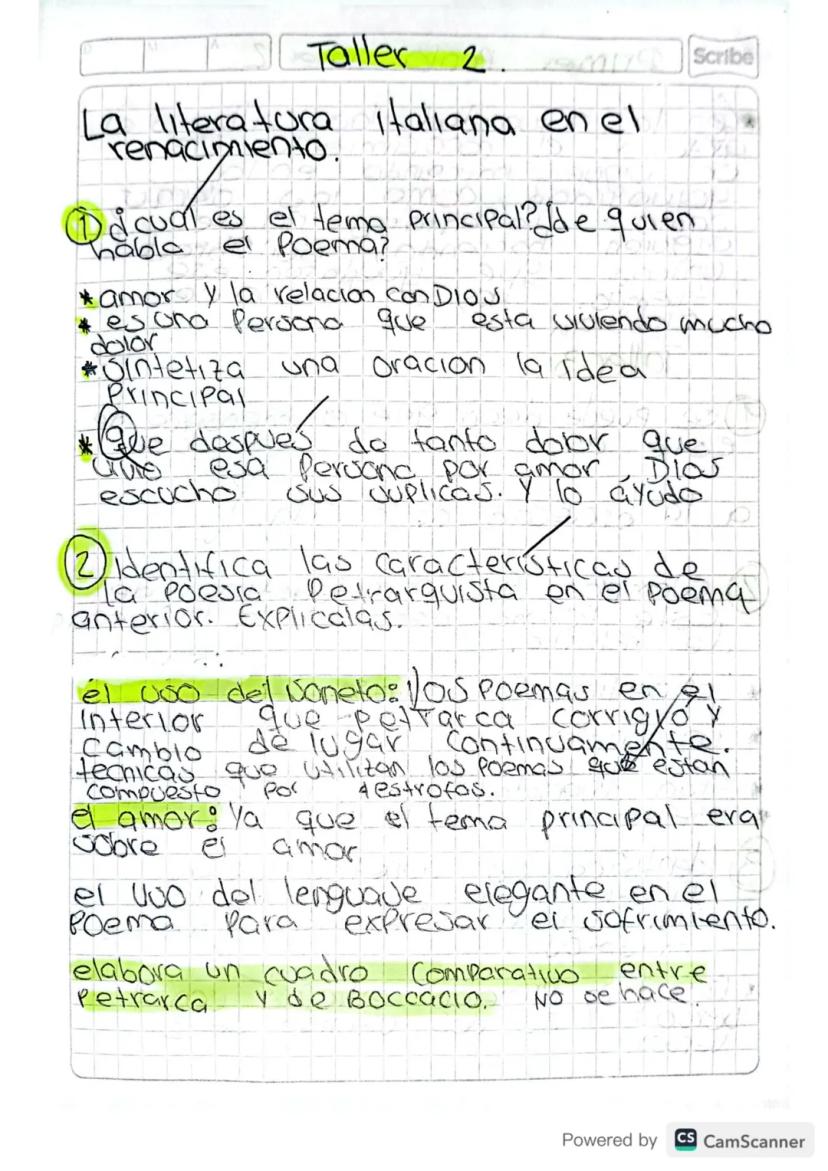 D M A Taller 2. Scribe
La literatura italiana en el
renacimiento.
① ¿cual es el tema principal? ¿de quien
habla el Poema?
* amor y la relacion con Dios
* es una Persona que esta viviendo mucho
dolor
* Sintetiza una oracion la idea
Principal
* Que despues de tanto dolor que
vivio esa Persona por amor, Dios
escucho sus suplicas. Y lo áyudo
② Identifica las caracteristicas de
la Poesia Petrarquista en el Poema
anterior. Explicalas.
el uso del soneto: los Poemas en el
interior que petrarca corrigio y
cambio de lugar continuamente.
tecnicas que utilizan los Poemas que estan
compuesto Por 4 estrofas.
el amor: Ya que el tema principal era
sobre el amor
el uso del lenguaje elegante en el
Poema Para expresar el sofrimiento.
elabora un cuadro comparativo entre
Petrarca y de Boccacio. No se hace.
Powered by CS CamScanner